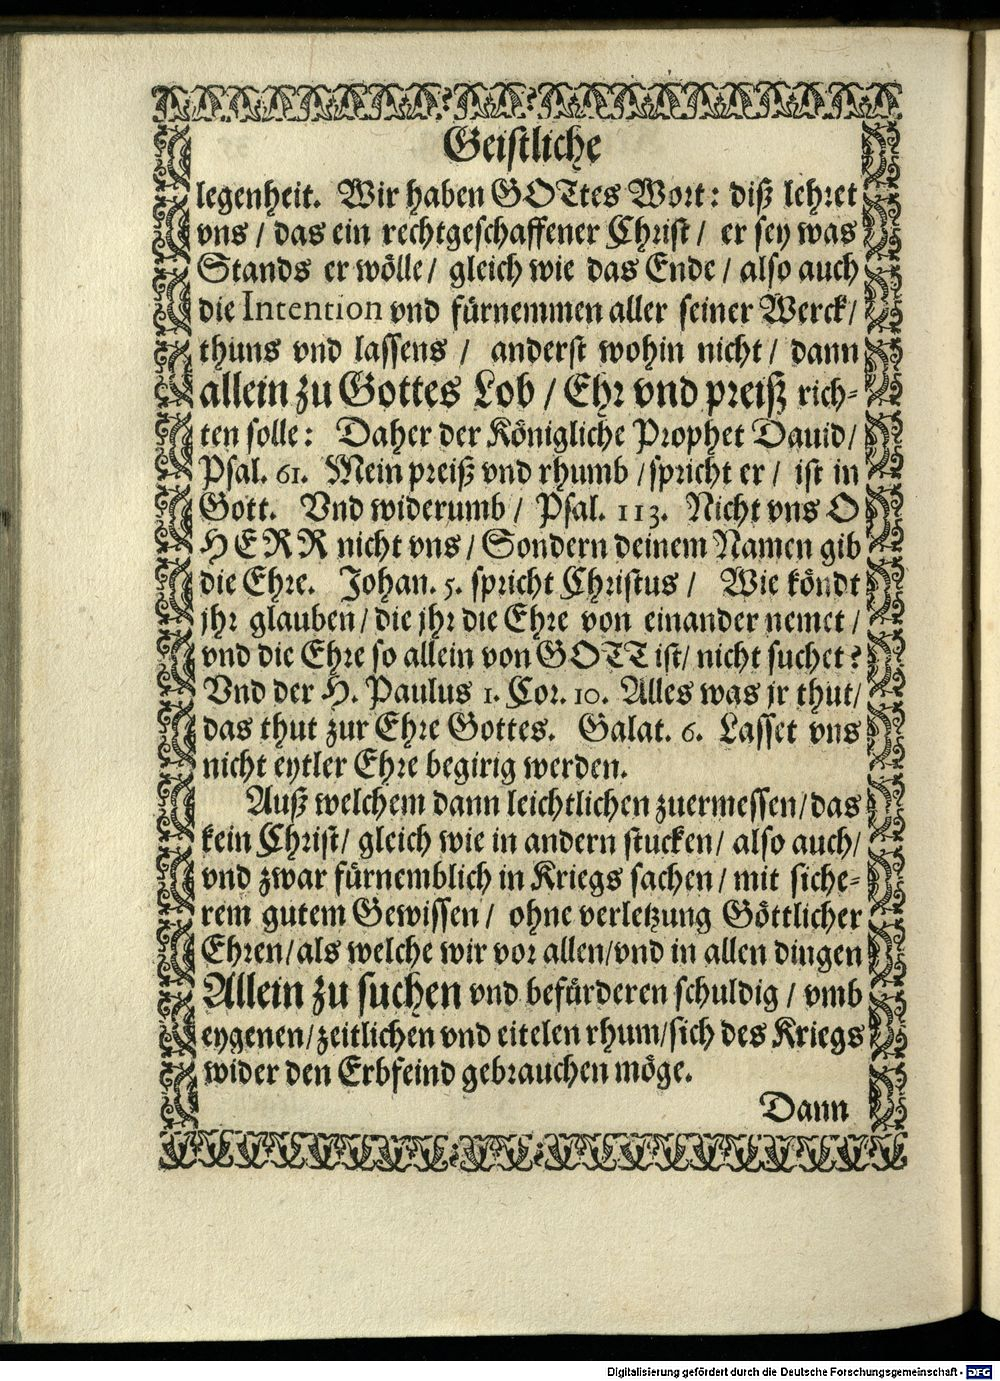 Geistliche
legenheit. Wir haben GOTtes Wort: diß lehret
vns / das ein rechtgeschaffener Christ / er sey was
Stands er wölle / gleich wie das Ende / also auch
die Intention vnd fürnemmen aller seiner Werck /
thuns vnd lassens / anderst wohin nicht / dann
allein zu Gottes Lob / Ehr vnd preiß rich-
ten solle: Daher der Königliche Prophet Dauid /
Psal. 61. Mein preiß vnd rhumb / spricht er / ist in
Gott. Vnd widerumb / Psal. 113. Nicht vns O
HERR nicht vns / Sondern deinem Namen gib
die Ehre. Johan. 5. spricht Christus / Wie köndt
jhr glauben / die jhr die Ehre von einander nemet /
vnd die Ehre so allein von GOTT ist / nicht suchet?
Vnd der H. Paulus 1. Cor. 10. Alles was jr thut /
das thut zur Ehre Gottes. Galat. 6. Lasset vns
nicht eytler Ehre begirig werden.
Auß welchem dann leichtlichen zuermessen / das
kein Christ / gleich wie in andern stucken / also auch /
vnd zwar fürnemblich in Kriegs sachen / mit siche-
rem gutem Gewissen / ohne verletzung Göttlicher
Ehren / als welche wir vor allen / vnd in allen dingen
Allein zu suchen vnd befürderen schuldig / vmb
eygenen / zeitlichen vnd eitelen rhum / sich des Kriegs
wider den Erbfeind gebrauchen möge.
Dann
Digitalisierung gefördert durch die Deutsche Forschungsgemeinschaft - DFG